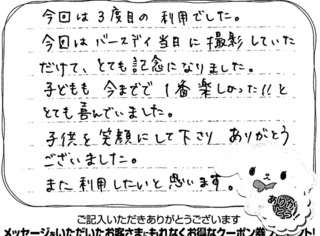 今回は3度目の利用でした。
今回はバースディ当日に撮影していた
だけて、とても記念になりました。
子どもも今までで1番楽しかった!!と
とても喜んでいました。
子供を笑顔にして下さり ありがとう
ございました。
また利用したいと思います。
ありがとう
ご記入いただきありがとうございます
メッセージをいただいたお客さまにもれなくお得なクーポン券プレゼント!